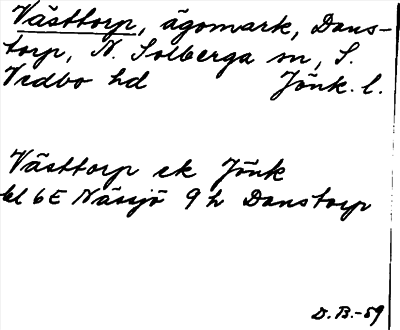 Västtorp, ägomark, Dans-
torp, N. Solberga sn, S.
Vedbo hd Jönk. l.
Västtorp ek Jönk
bl 6E Nässjö 9 h Danstorp
D. B.-59